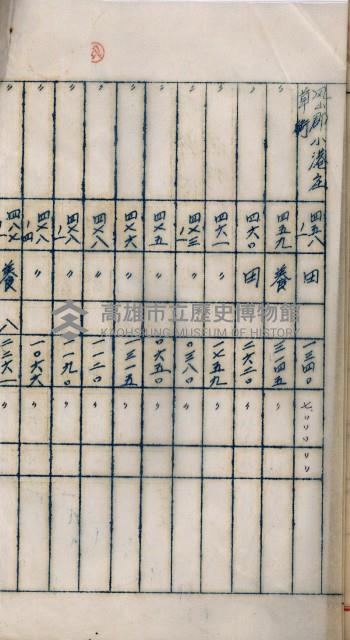 鳳山郡小港庄
草衙 四五八ノ一 田 一三四〇 七,〇〇〇〇〇
〃 四五九 養 三一四五 〃
〃 四六〇 田 二六二〇 〃
〃 四六一 〃 一七五九 〃
〃 四七三ノ一 〃 〇三八〇 〃
〃 四七五 〃 〇六五〇 〃
〃 四七六 〃 一三一五 〃
〃 四七八 〃 一一二〇 〃
〃 四七八ノ一 〃 一一九〇 〃
〃 四七八ノ四 〃 一〇六六 〃
〃 養 八 二二六一 〃
高雄市立歷史博物館
KAOHSIUNG MUSEUM OF HISTORY